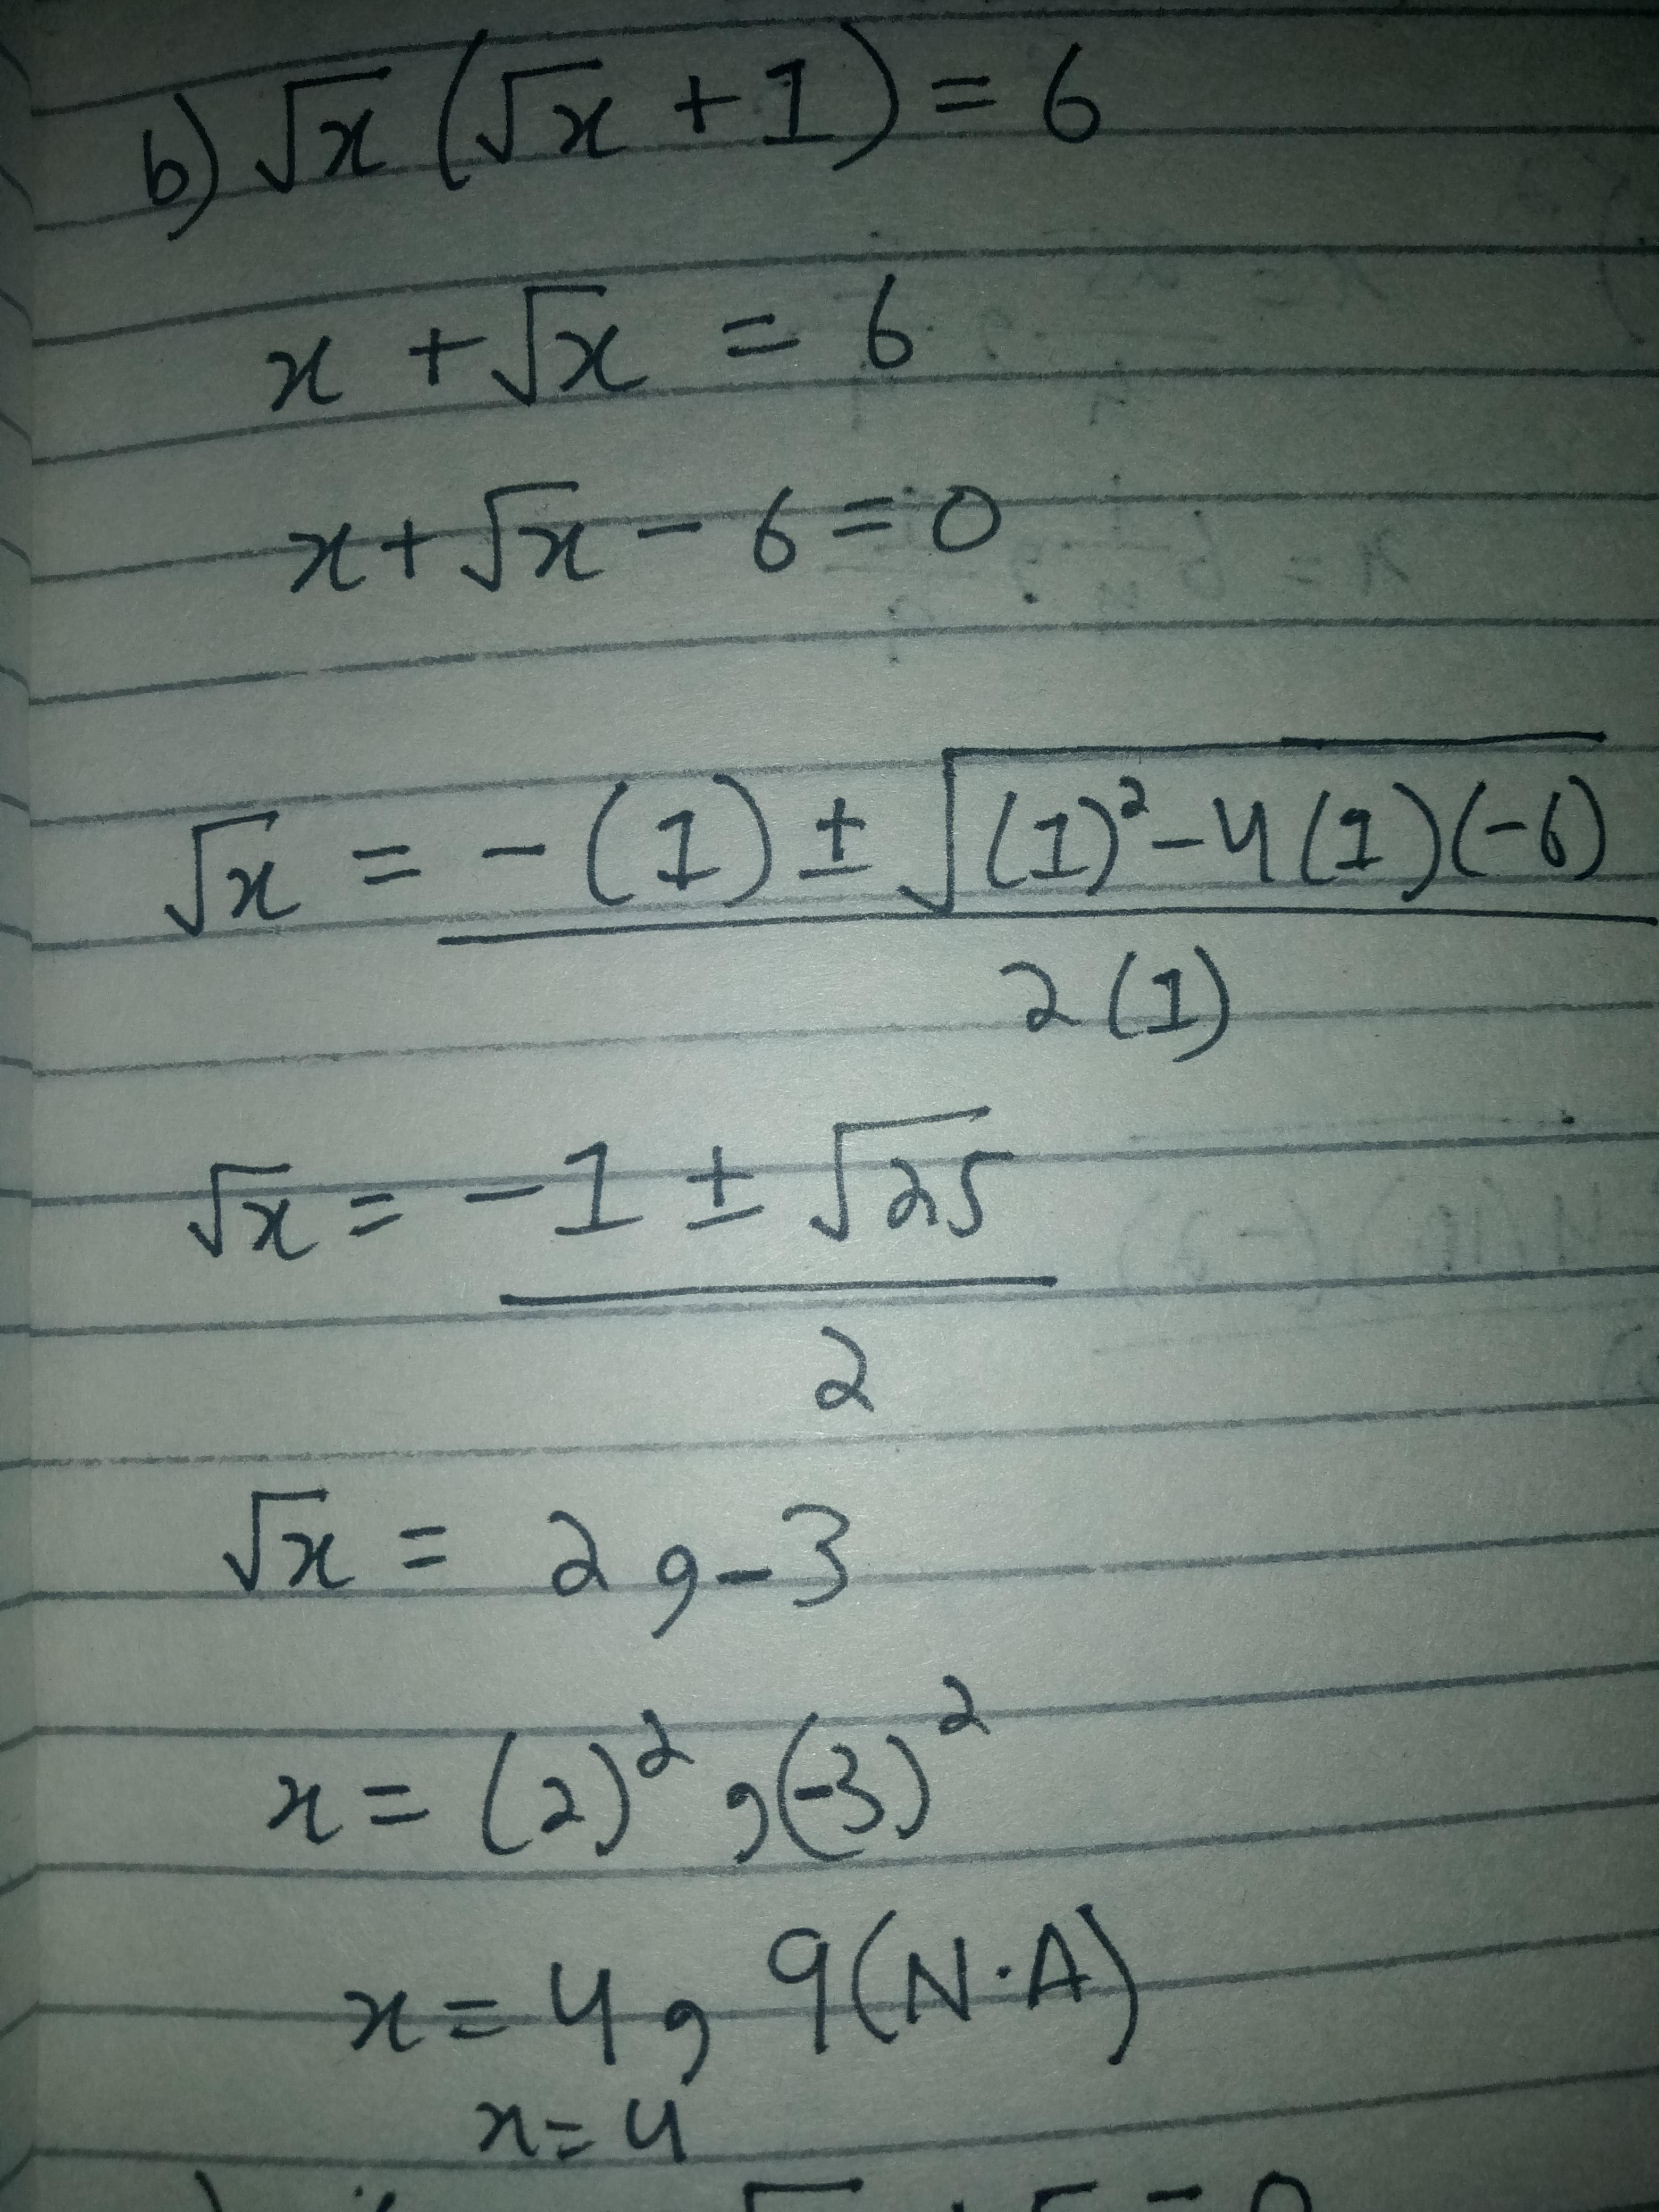 b) √x (√x + 1) = 6
x + √x = 6
x + √x - 6 = 0
√x = -(1) ± √((1)² - 4(1)(-6))
2(1)
√x = -1 ± √25
2
√x = 2, -3
x = (2)², (-3)²
x = 4, 9 (N.A)
x = 4